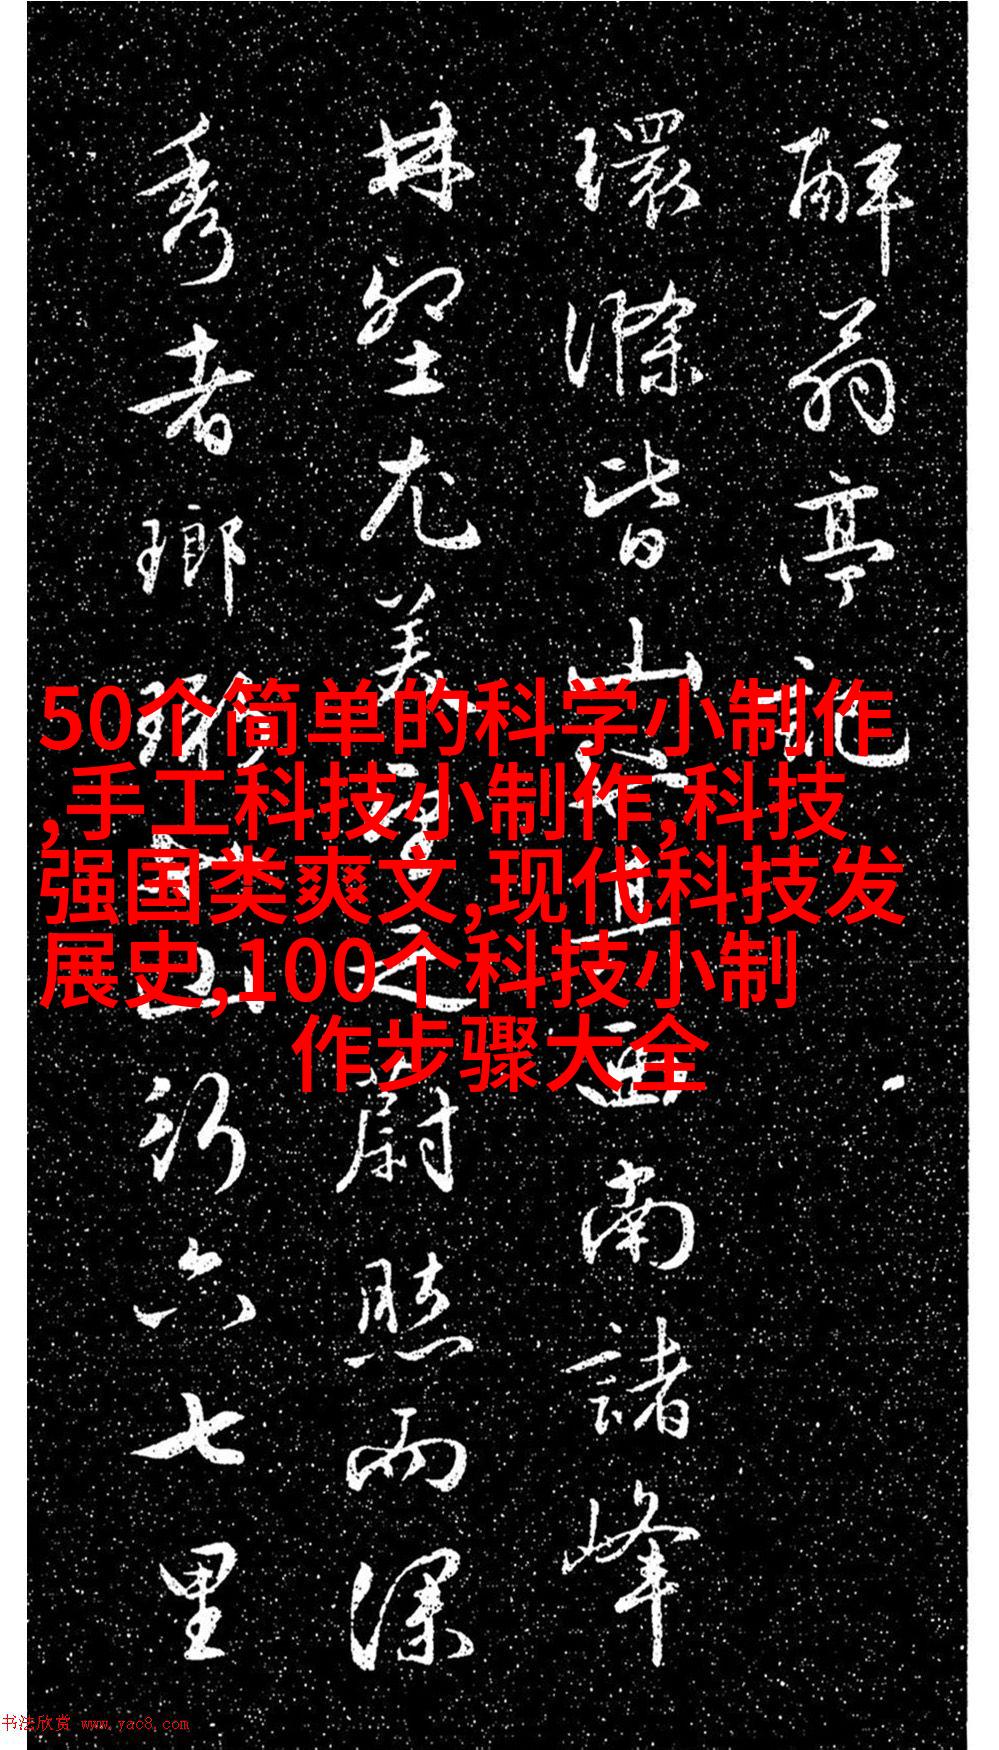 醉翁亭記
環滁皆山也其西南諸峰
林壑尤美望之蔚然而深
秀者瑯琊也山行六七里
50个简单的科学小制作
,手工科技小制作,科技
强国类爽文,现代科技发
展史,100个科技小制
作步骤大全
书法欣赏 www.yac8.com